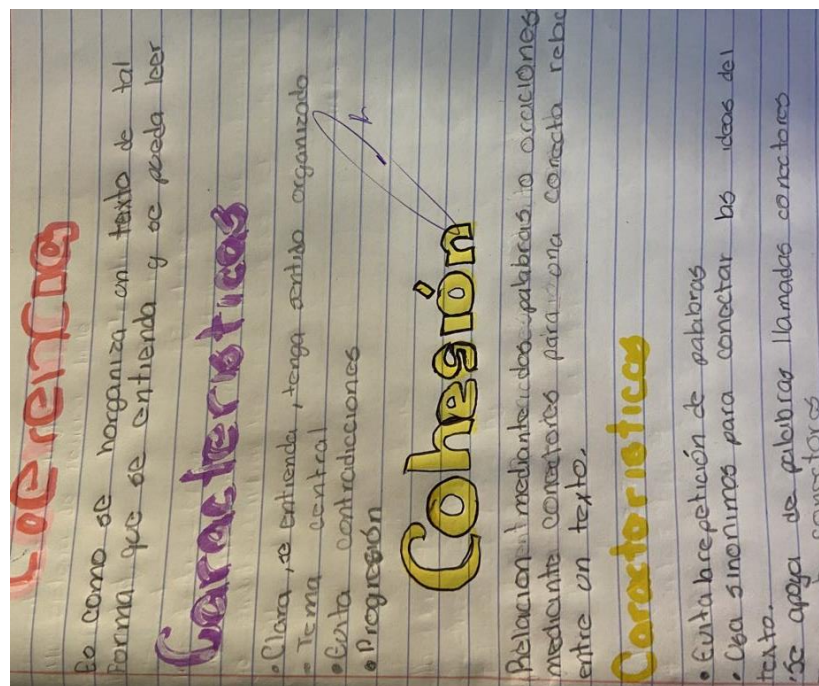 Coherencia
Es como se horganiza un texto de tal
Forma que se entienda y se pueda leer
Caracteristicas
• Clara, se entienda, tenga sentido organizado
• Tema central
• Evita contradicciones
• Progresión
Cohesión
Relacion mediante dos palabras o oraciones
mediante conectores para una conecta
entre un texto.
Caracteristicas
• Evita la repetición de palabras
• Usa sinonimos para conectar las ideas del
texto.
• Se apoya de palabras llamadas conectores
conectores